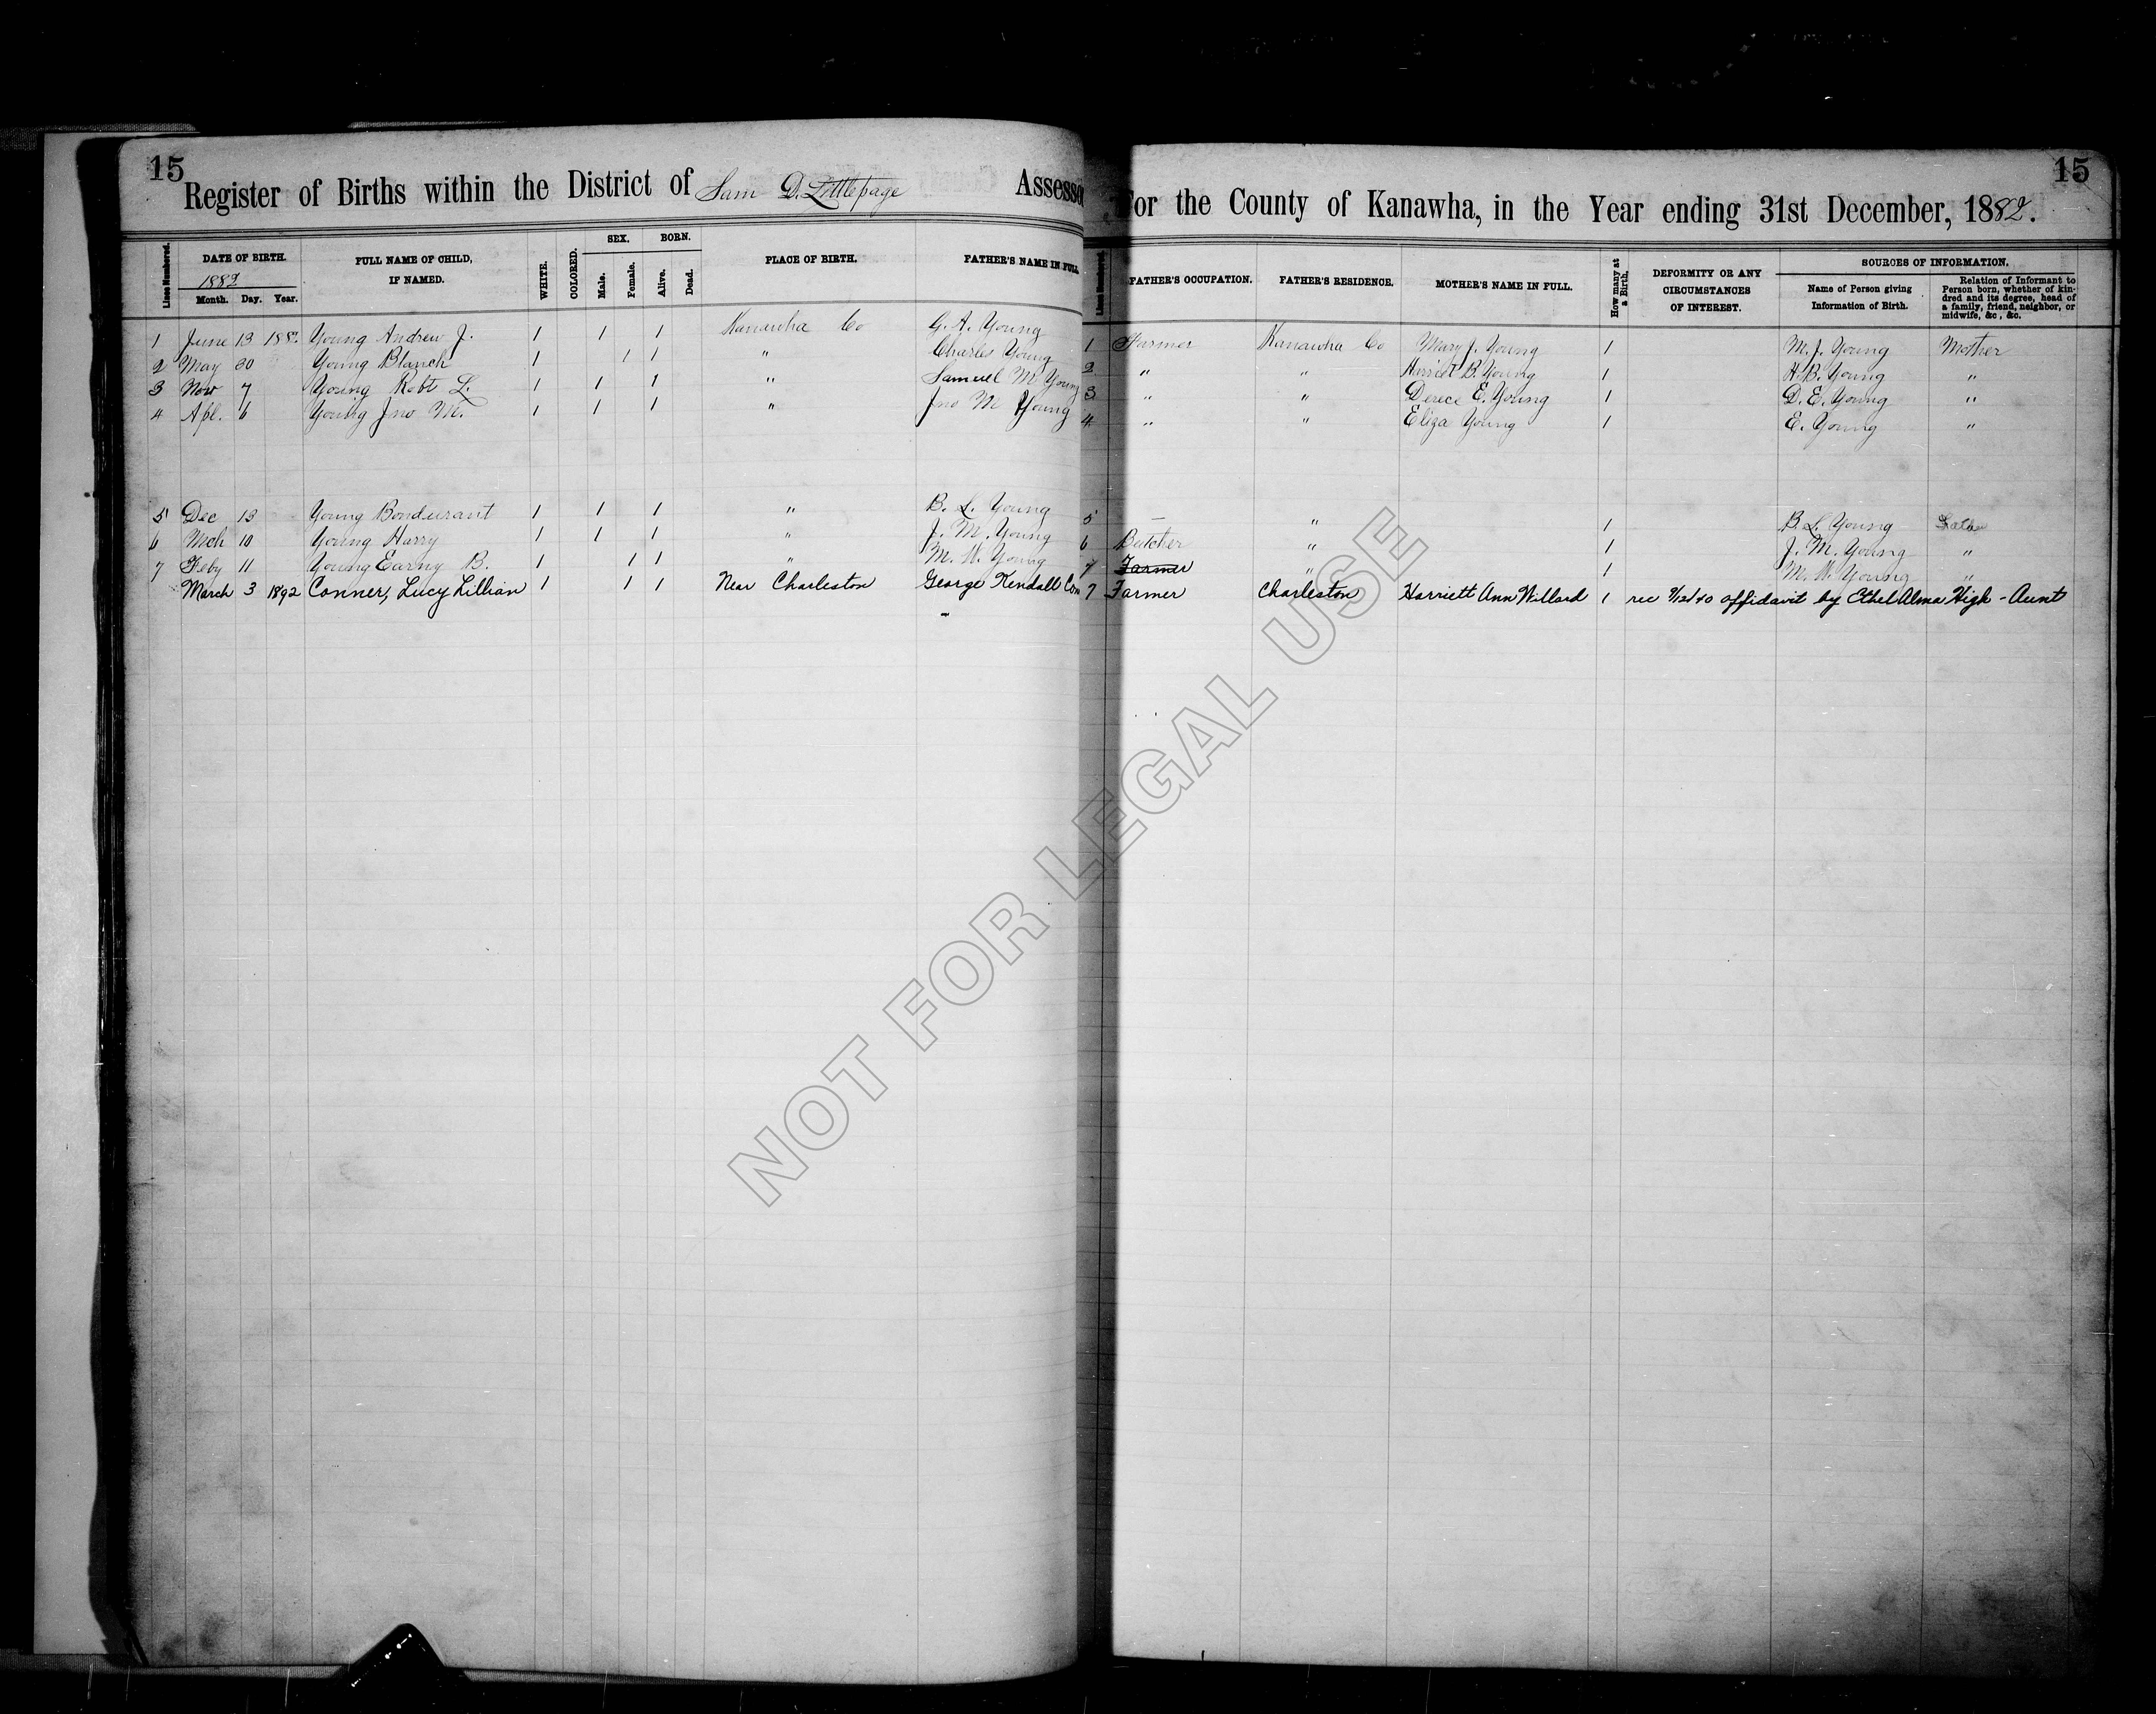 15
Register of Births within the District of Sam D. Littlepage Assessor
Lines Numbered. DATE OF BIRTH. 1882 Month. Day. Year. FULL NAME OF CHILD, IF NAMED. WHITE. COLORED. SEX. Male. Female. BORN. Alive. Dead. PLACE OF BIRTH. FATHER'S NAME IN FULL
1 June 13 188 Young Andrew J. 1 1 1 Kanawha Co G. A. Young
2 May 30 Young Blanch 1 1 1 " Charles Young
3 Nov 7 Young Robt L. 1 1 1 " Samuel M Young
4 Apl. 6 Young Jno M. 1 1 1 " Jno M Young
5 Dec 13 Young Bondurant 1 1 1 " B. L. Young
6 Mch 10 Young Harry 1 1 1 " J. M. Young
7 Feby 11 Young Earny B. 1 1 1 " M. W. Young
March 3 1892 Conner, Lucy Lillian 1 1 1 Near Charleston George Kendall Con
15
For the County of Kanawha, in the Year ending 31st December, 1882.
Lines Numbered. FATHER'S OCCUPATION. FATHER'S RESIDENCE. MOTHER'S NAME IN FULL. How many at a Birth. DEFORMITY OR ANY CIRCUMSTANCES OF INTEREST. SOURCES OF INFORMATION. Name of Person giving Information of Birth. Relation of Informant to Person born, whether of kindred and its degree, head of a family, friend, neighbor, or midwife, &c., &c.
1 Farmer Kanawha Co Mary J. Young 1 M. J. Young Mother
2 " " Harriet B. Young 1 H. B. Young "
3 " " E. Young 1 D. E. Young "
4 " " Eliza Young 1 E. Young "
5 — " 1 B. L. Young Father
6 Butcher " 1 J. M. Young "
7 Farmer " 1 M. W. Young "
7 Farmer Charleston Harriett Ann Willard 1 rec affidavit by Ethel Alma High - Aunt
NOT FOR LEGAL USE